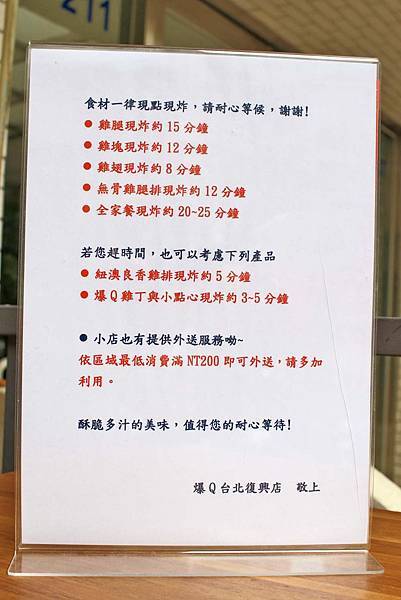 211
食材一律現點現炸，請耐心等候，謝謝!
● 雞腿現炸約 15 分鐘
● 雞塊現炸約 12 分鐘
● 雞翅現炸約 8 分鐘
● 無骨雞腿排現炸約 12 分鐘
● 全家餐現炸約 20~25 分鐘
若您趕時間，也可以考慮下列產品
● 紐澳良香雞排現炸約 5 分鐘
● 爆 Q 雞丁與小點心現炸約 3~5 分鐘
● 小店也有提供外送服務呦~
依區域最低消費滿 NT200 即可外送，請多加
利用。
酥脆多汁的美味，值得您的耐心等待!
爆 Q 台北復興店 敬上